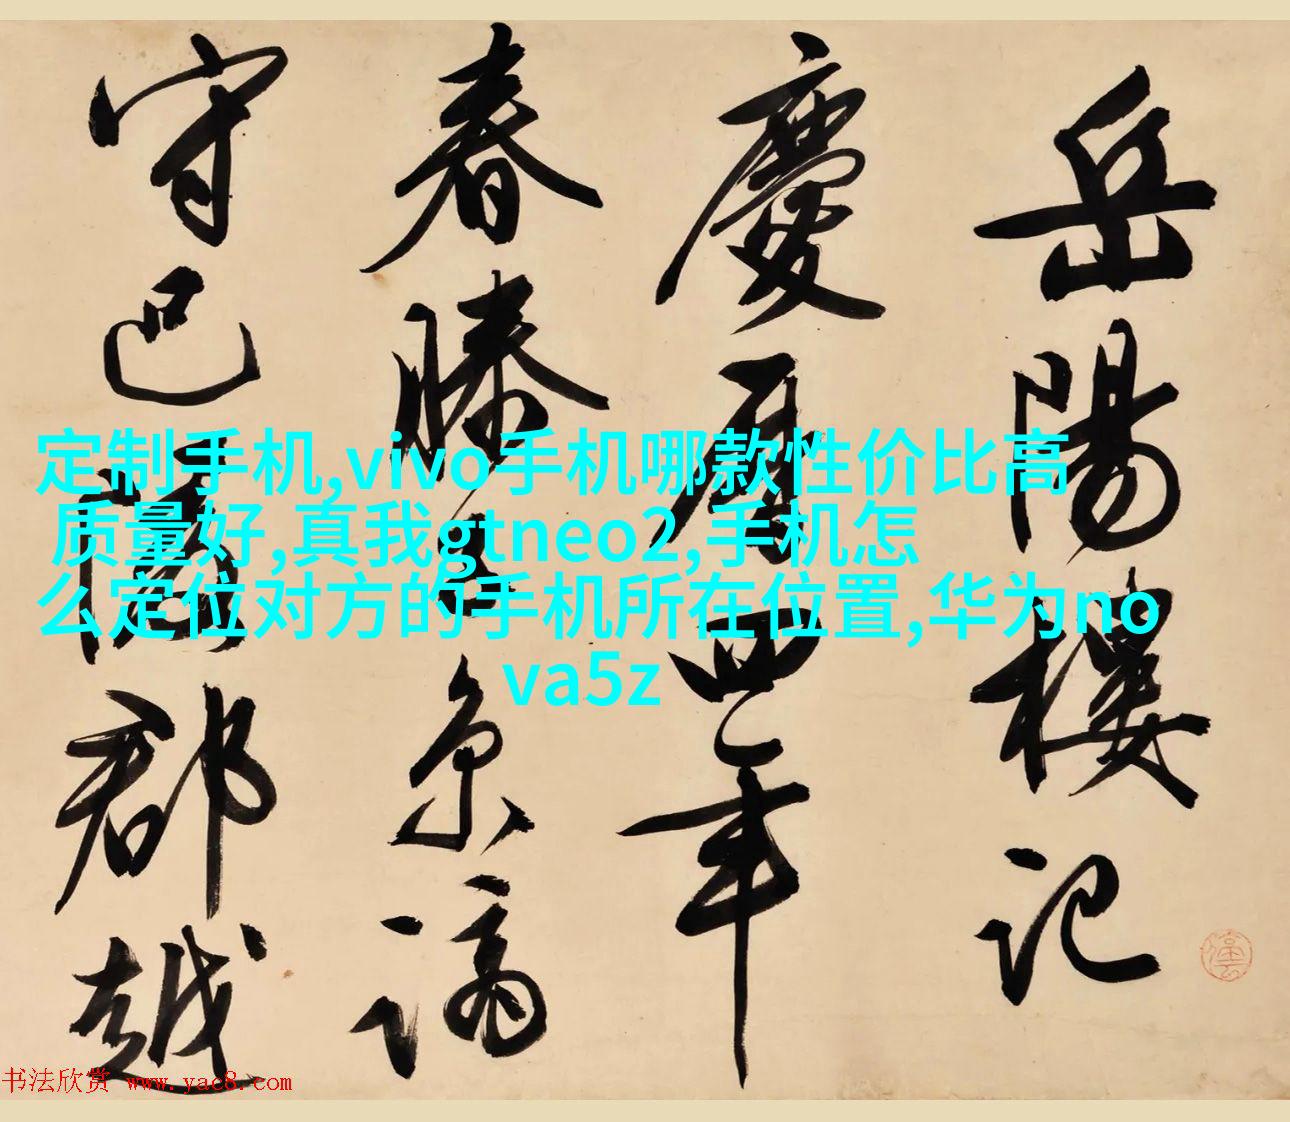 岳陽樓記
慶曆四年
春滕子京謫
守巴陵郡越
定制手机,vivo手机哪款性价比高
质量好,真我gtneo2,手机怎
么定位对方的手机所在位置,华为no
va5z
书法欣赏 www.yac8.com